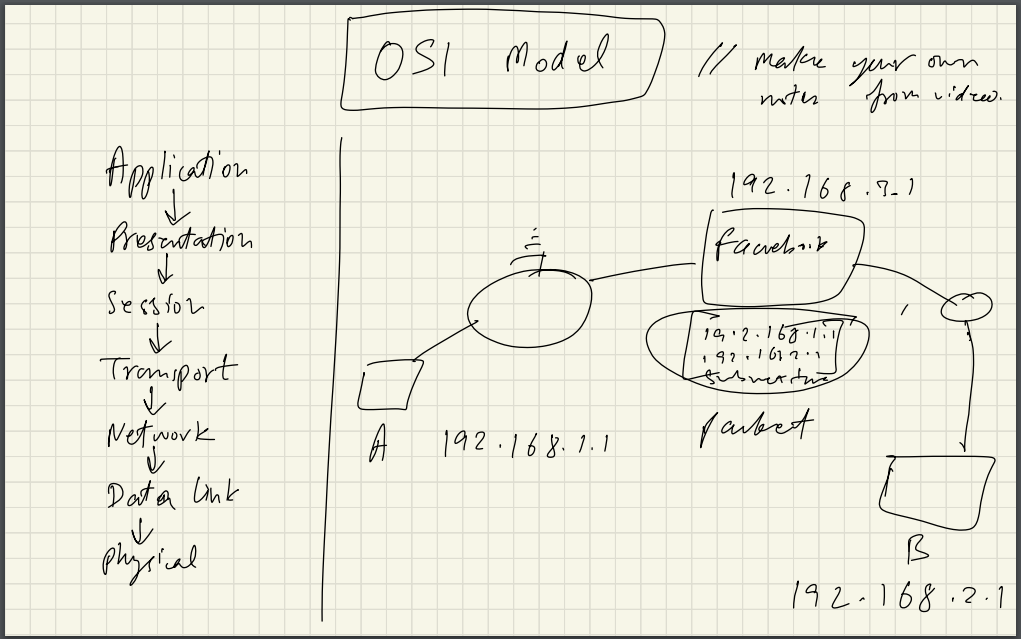 OSI Model
// make your own
notes from video.
Application
Presentation
Session
Transport
Network
Data Link
Physical
192.168.3.1
Facebook
192.168.1.1
192.168.2.1
packet
A 192.168.1.1
B
192.168.2.1